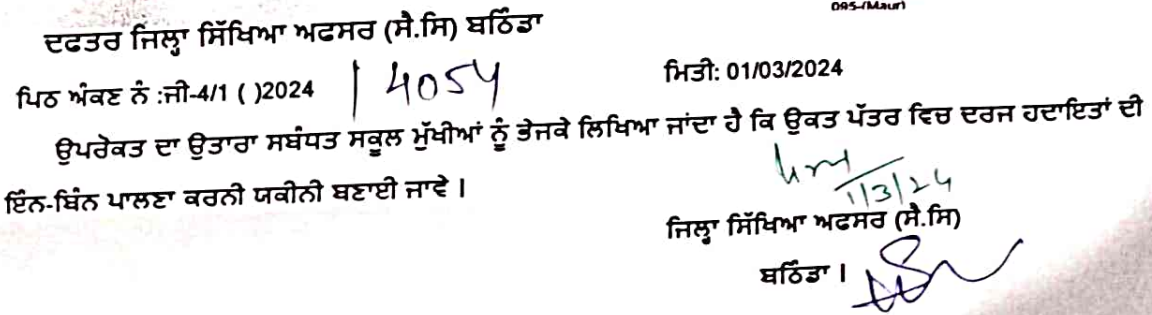 095-(Maur)
ਦਫਤਰ ਜਿਲ੍ਹਾ ਸਿੱਖਿਆ ਅਫਸਰ (ਸੈ.ਸਿ) ਬਠਿੰਡਾ
ਪਿਠ ਅੰਕਣ ਨੰ :ਜੀ-4/1 ( )2024 | 4054 ਮਿਤੀ: 01/03/2024
ਉਪਰੋਕਤ ਦਾ ਉਤਾਰਾ ਸਬੰਧਤ ਸਕੂਲ ਮੁੱਖੀਆਂ ਨੂੰ ਭੇਜਕੇ ਲਿਖਿਆ ਜਾਂਦਾ ਹੈ ਕਿ ਉਕਤ ਪੱਤਰ ਵਿਚ ਦਰਜ ਹਦਾਇਤਾਂ ਦੀ
ਇੰਨ-ਬਿੰਨ ਪਾਲਣਾ ਕਰਨੀ ਯਕੀਨੀ ਬਣਾਈ ਜਾਵੇ ।
1/3/24
ਜਿਲ੍ਹਾ ਸਿੱਖਿਆ ਅਫਸਰ (ਸੈ.ਸਿ)
ਬਠਿੰਡਾ ।